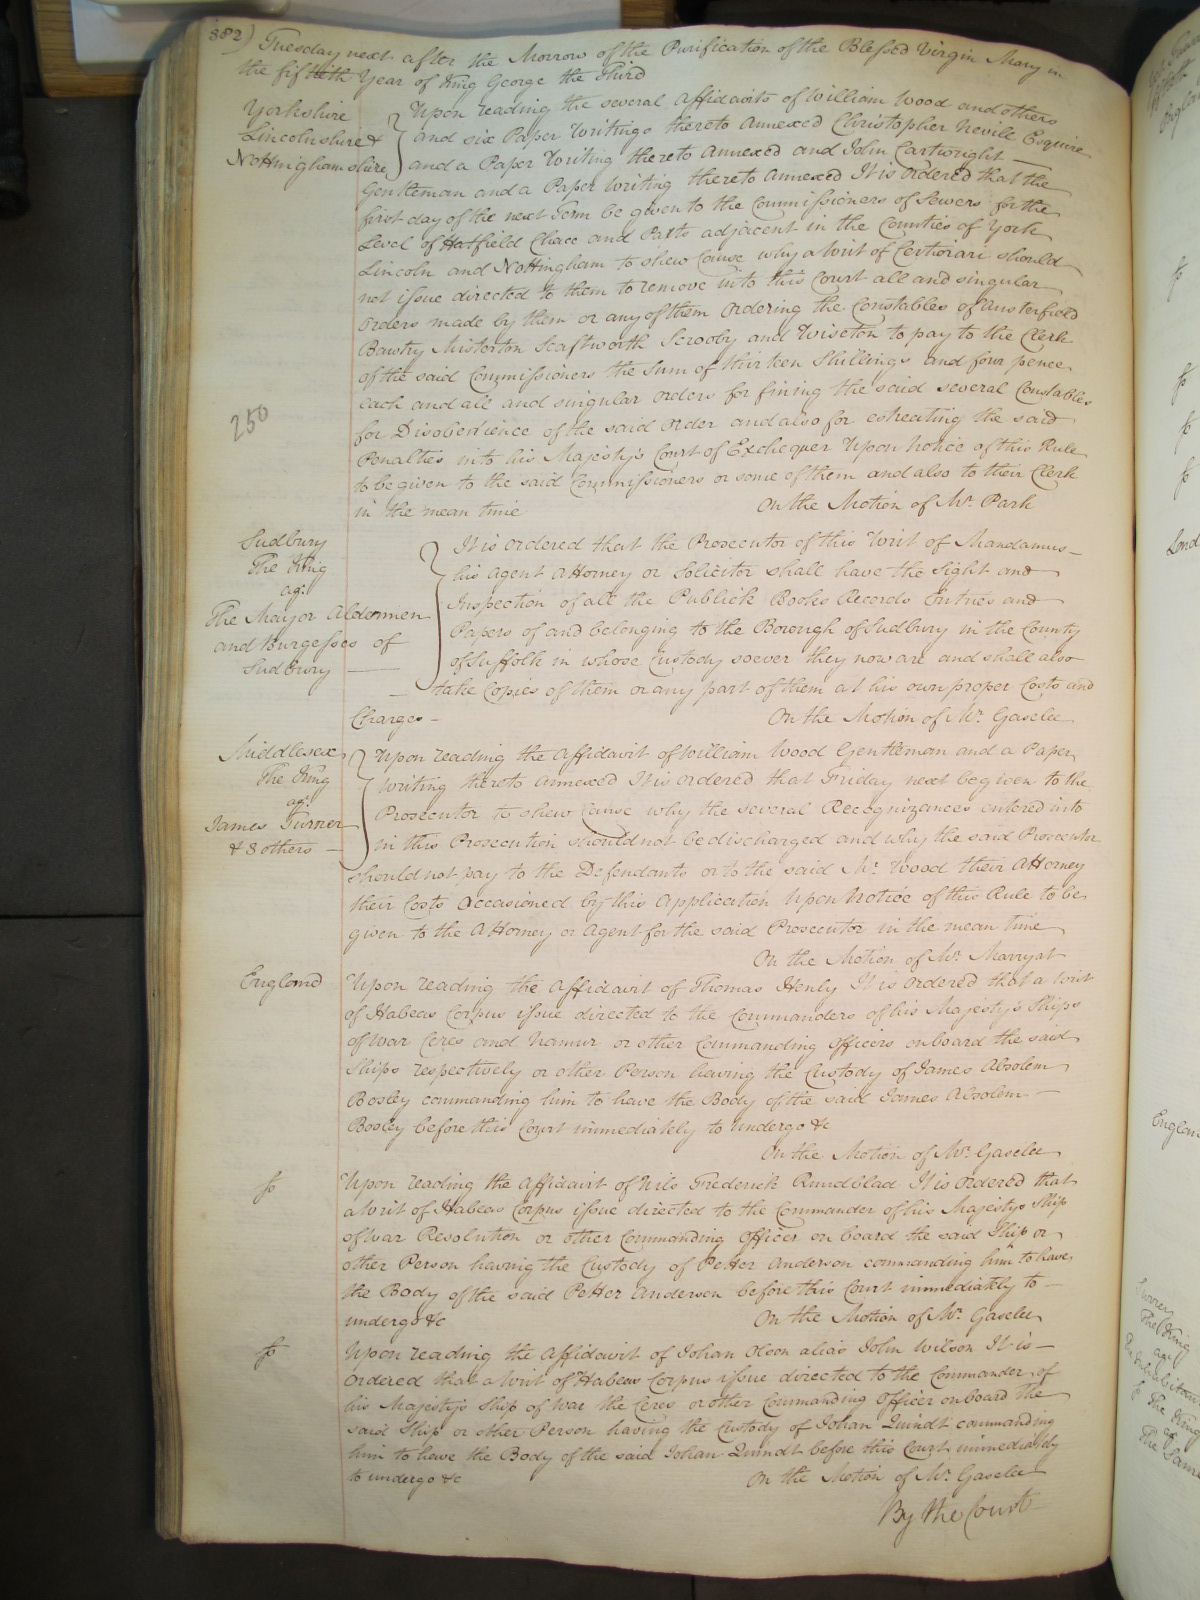 382)
Tuesday next after the Morrow of the Purification of the Blessed Virgin Mary in
the fiftieth Year of King George the Third
Yorkshire
Lincolnshire &
Nottinghamshire
Upon reading the several Affidavits of William Wood and others
and six Paper Writings thereto Annexed Christopher Nevile Esquire
and a Paper Writing thereto Annexed and John Cartwright
Gentleman and a Paper Writing thereto Annexed It is Ordered that the
first day of the next Term be given to the Commissioners of Sewers for the
Level of Hatfield Chace and Parts adjacent in the Counties of York
Lincoln and Nottingham to shew Cause why a Writ of Certiorari should
not issue directed to them to remove into this Court all and singular
Orders made by them or any of them Ordering the Constables of Austerfield
Bawtry Misterton Scaftworth Scrooby and Wiseton to pay to the Clerk
of the said Commissioners the Sum of thirteen Shillings and four pence
each and all and singular Orders for fining the said several Constables
for Disobedience of the said Order and also for estreating the said
Penalties into his Majesty's Court of Exchequer Upon Notice of this Rule
to be given to the said Commissioners or some of them and also to their Clerk
in the mean time On the Motion of Mr. Park
250
Sudbury
The King
agt.
The Mayor Aldermen
and Burgesses of
Sudbury
It is Ordered that the Prosecutor of this Writ of Mandamus
his Agent Attorney or Solicitor shall have the Sight and
Inspection of all the Publick Books Records Entries and
Papers of and belonging to the Borough of Sudbury in the County
of Suffolk in whose Custody soever they now are and shall also
take Copies of them or any part of them at his own proper Costs and
Charges - On the Motion of Mr. Gaselee
Middlesex
The King
agt.
James Turner
& 8 others
Upon reading the Affidavit of William Wood Gentleman and a Paper
Writing thereto Annexed It is Ordered that Friday next be given to the
Prosecutor to shew Cause why the several Recognizances entered into
in this Prosecution should not be discharged and why the said Prosecutor
should not pay to the Defendants or to the said Mr. Wood their Attorney
their Costs Occasioned by this Application Upon Notice of this Rule to be
given to the Attorney or Agent for the said Prosecutor in the mean time
On the Motion of Mr. Marryat
England
Upon reading the Affidavit of Thomas Henly It is Ordered that a Writ
of Habeas Corpus issue directed to the Commanders of his Majesty's Ships
of War Ceres and Namur or other Commanding Officers on board the said
Ships respectively or other Person having the Custody of James Absolem
Bosley commanding him to have the Body of the said James Absolem
Bosley before this Court immediately to undergo &c
On the Motion of Mr. Gaselee
Upon reading the Affidavit of Nils Frederick Rundblad It is Ordered that
a Writ of Habeas Corpus issue directed to the Commander of his Majestys Ship
of War Resolution or other Commanding Officer on board the said Ship or
other Person having the Custody of Petter Anderson commanding him to have
the Body of the said Petter Anderson before this Court immediately to
undergo &c On the Motion of Mr. Gaselee
Upon reading the Affidavit of Johan Olson alias John Wilson It is
Ordered that a Writ of Habeas Corpus issue directed to the Commander of
his Majesty's Ship of War the Ceres or other Commanding Officer on board the
said Ship or other Person having the Custody of Johan Quindt commanding
him to have the Body of the said Johan Quindt before this Court immediately
to undergo &c On the Motion of Mr. Gaselee
By the Court